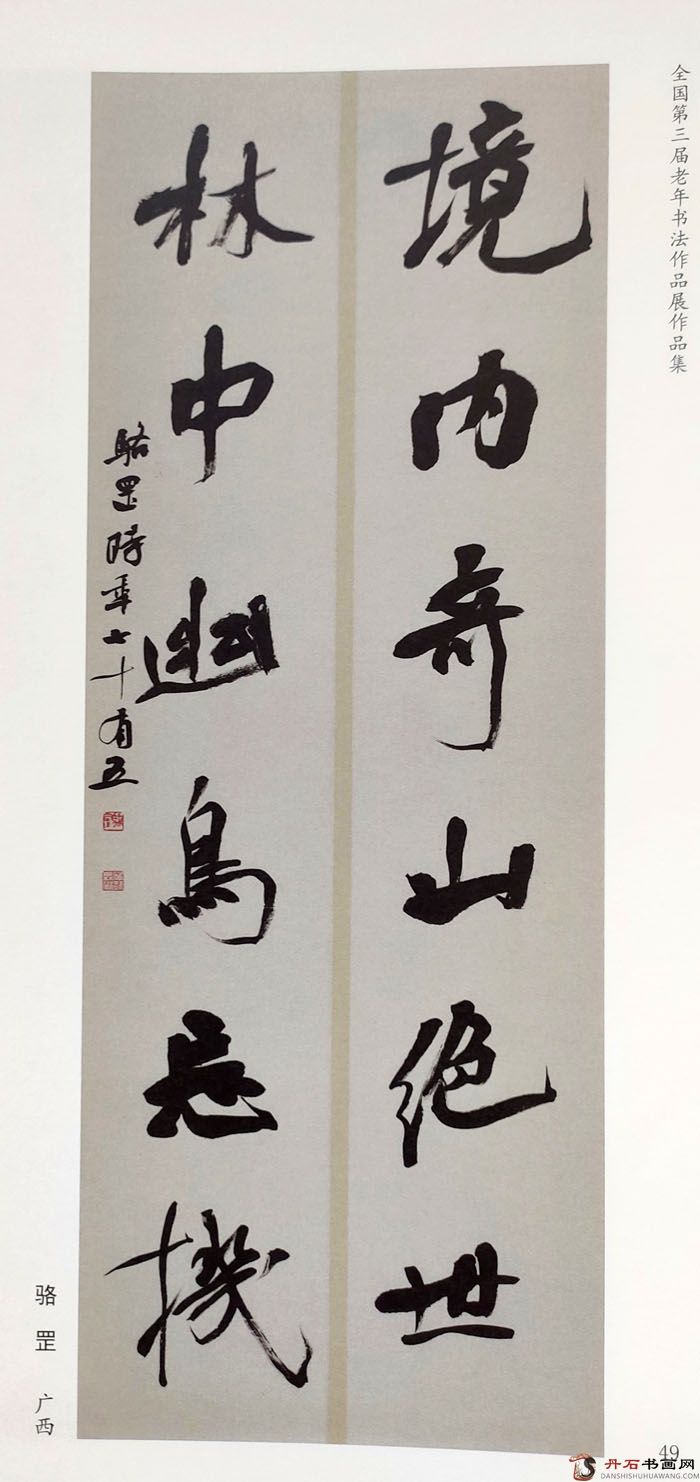 全国第三届老年书法作品展作品集
境内奇山绝世
林中幽鳥忘機
駱罡時年七十有五
骆罡 广西
49
丹石书画网
DANSHISHUHUAWANG.COM